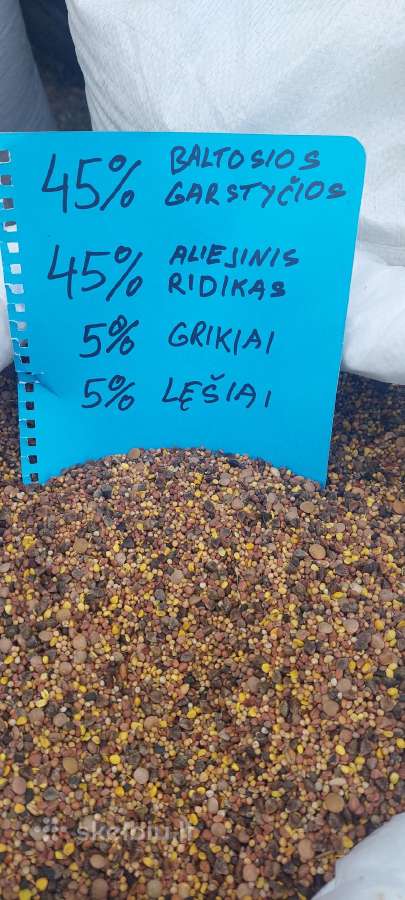 45% BALTOSIOS
GARSTYČIOS
45% ALIEJINIS
RIDIKAS
5% GRIKIAI
5% LĘŠIAI
skelbiu.lt